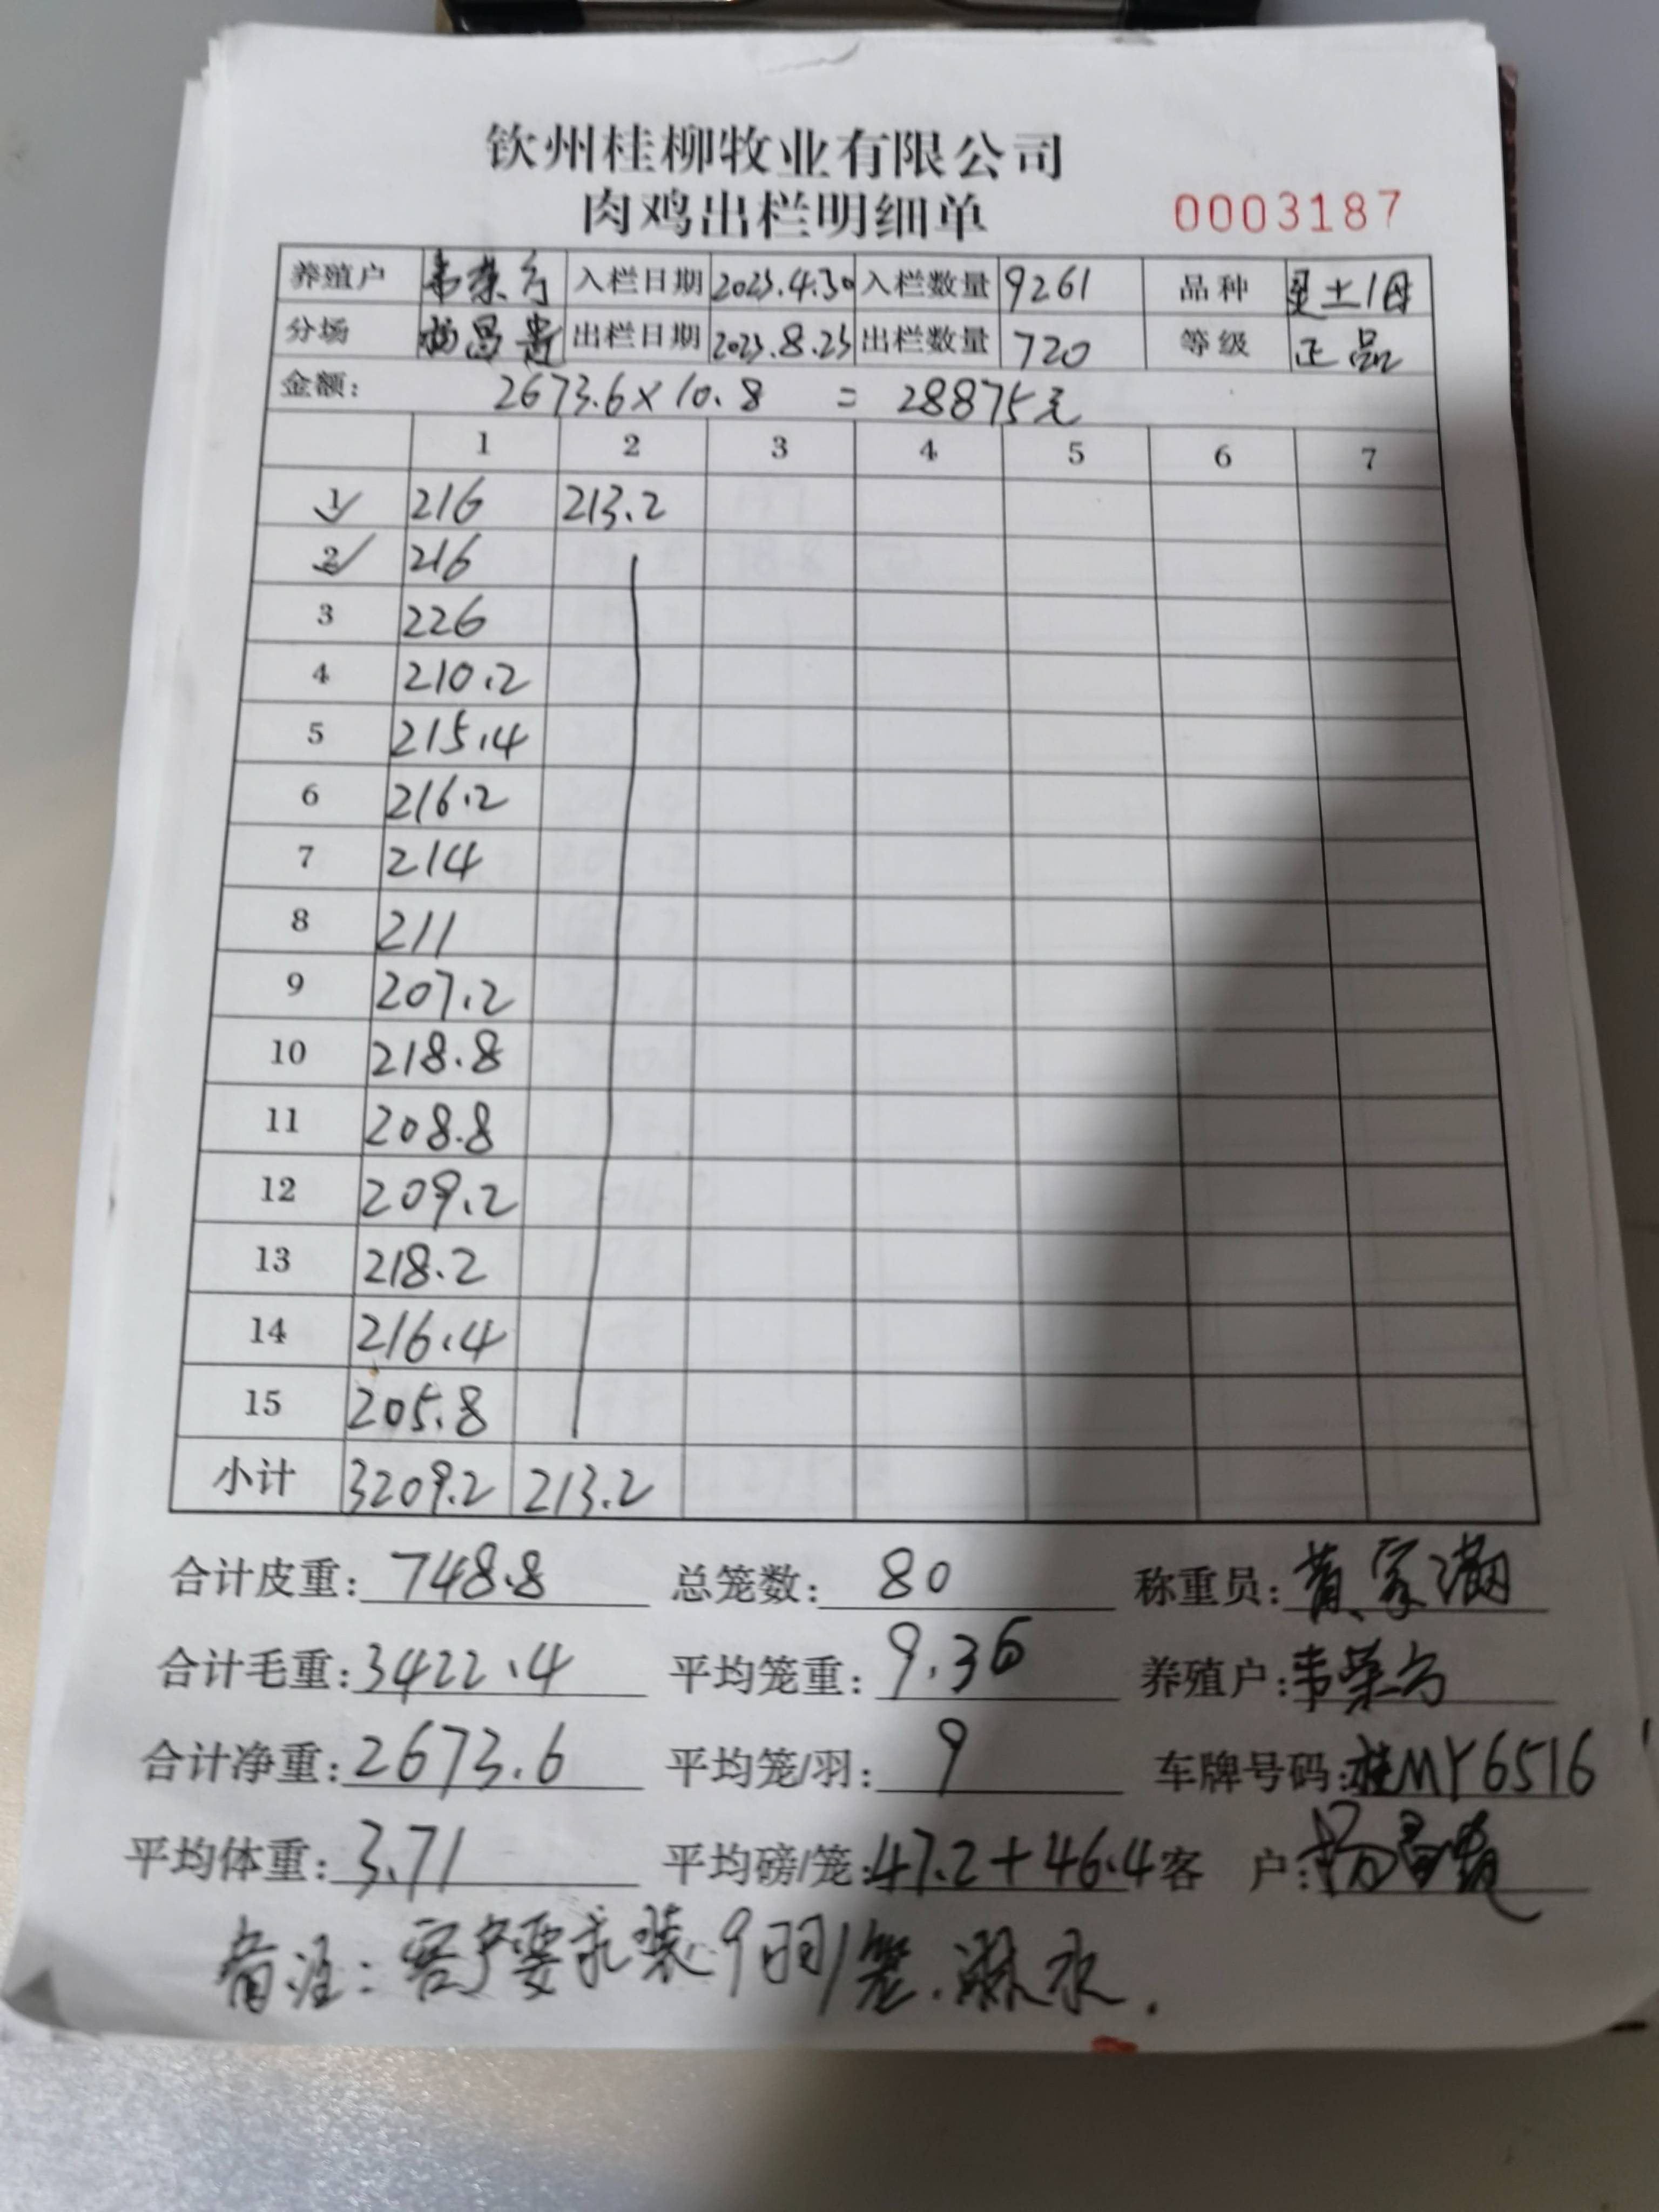 钦州桂柳牧业有限公司
肉鸡出栏明细单 0003187
养殖户 韦荣 入栏日期 2023.4.30 入栏数量 9261 品种 土1母
分场 杨昌贵 出栏日期 2023.8.23 出栏数量 720 等级 正品
金额: 2673.6×10.8 = 28875元
1 2 3 4 5 6 7
1 216 213.2
2 216
3 226
4 210.2
5 215.4
6 216.2
7 214
8 211
9 207.2
10 218.8
11 208.8
12 209.2
13 218.2
14 216.4
15 205.8
小计 3209.2 213.2
合计皮重: 748.8 总笼数: 80 称重员: 黄家满
合计毛重: 3422.4 平均笼重: 9.36 养殖户: 韦荣
合计净重: 2673.6 平均笼/羽: 9 车牌号码: 桂MY6516
平均体重: 3.71 平均磅/笼: 47.2+46.4 客 户: 杨昌贵
备注: 客户要求装9羽1笼.淋水.